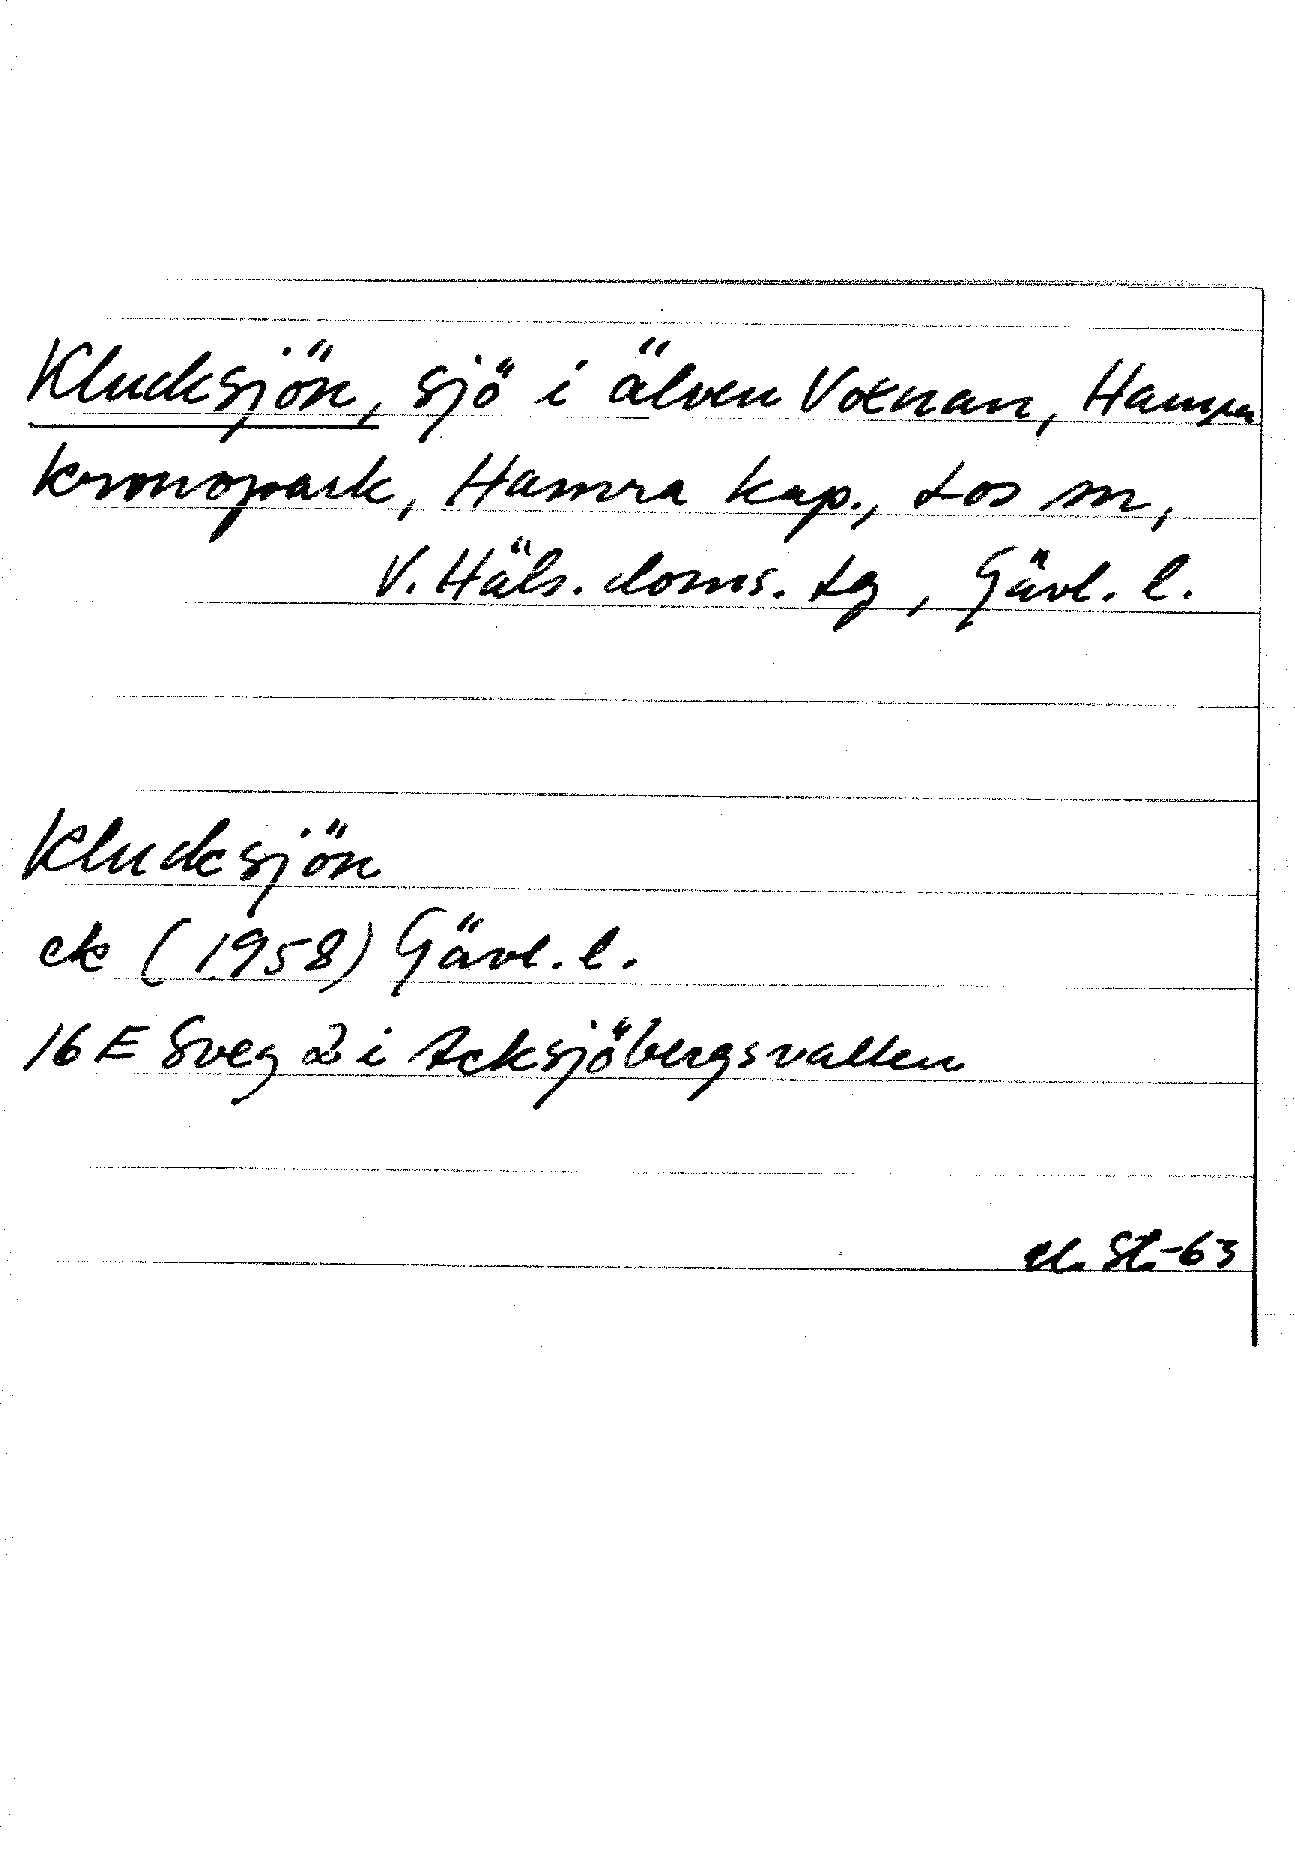 Klucksjön, sjö i älven Voxnan, Hamra
kronopark, Hamra kap., Los sn,
V. Häls. doms. tg, Gävl. l.
Klucksjön
ek (1958) Gävl. l.
16 E Sveg 2 i Acksjöbergsvallen
St.-63